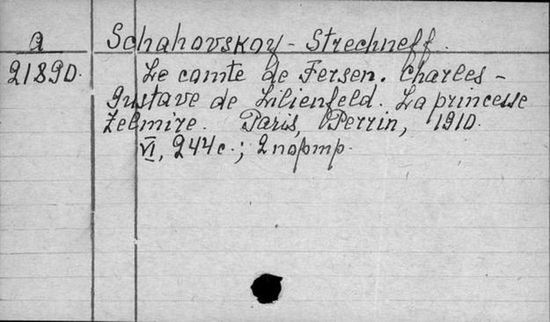 a Schahovskoy - Strechneff.
21890. Le comte de Fersen. Charles -
Gustave de Lilienfeld. La princesse
Zelmire. Paris, Perrin, 1910.
VI, 244c.; 2 портр.